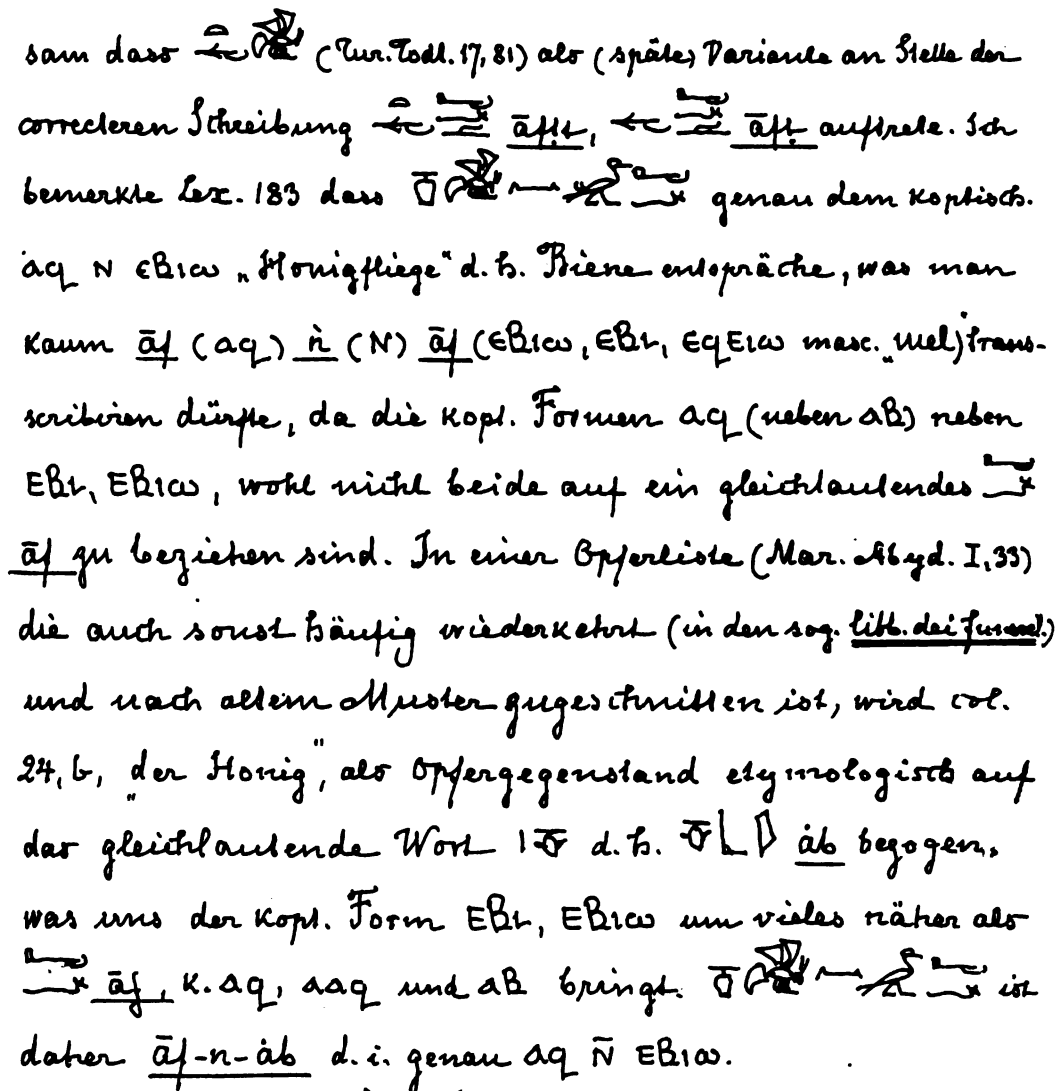 sam dass (Tur. Todt. 17, 81) als (späte) Variante an Stelle der
correcteren Schreibung āftt, āft auftrete. Ich
bemerkte Lex. 183 dass genau dem koptisch.
ⲁϥ ⲛ ⲉⲃⲓⲱ „Honigfliege“ d. h. Biene entspräche, was man
kaum āf (ⲁϥ) ǹ (ⲛ) āf (ⲉⲃⲓⲱ, ⲉⲃⲓ, ⲉϥⲉⲓⲱ masc. „mel) trans-
scribiren dürfte, da die kopt. Formen ⲁϥ (neben ⲁⲃ) neben
ⲉⲃⲓ, ⲉⲃⲓⲱ, wohl nicht beide auf ein gleichlautendes
āf zu beziehen sind. In einer Opferliste (Mar. Abyd. I, 33)
die auch sonst häufig wiederkehrt (in den sog. libb. dei funeral.)
und nach altem Muster zugeschnitten ist, wird col.
24, b, „der Honig“, als Opfergegenstand etymologisch auf
das gleichlautende Wort d. h. àb bezogen,
was uns der kopt. Form ⲉⲃⲓ, ⲉⲃⲓⲱ um vieles näher als
āf, k. ⲁϥ, ⲁⲁϥ und ⲁⲃ bringt. ist
daher āf-n-àb d. i. genau ⲁϥ ⲛ̄ ⲉⲃⲓⲱ.